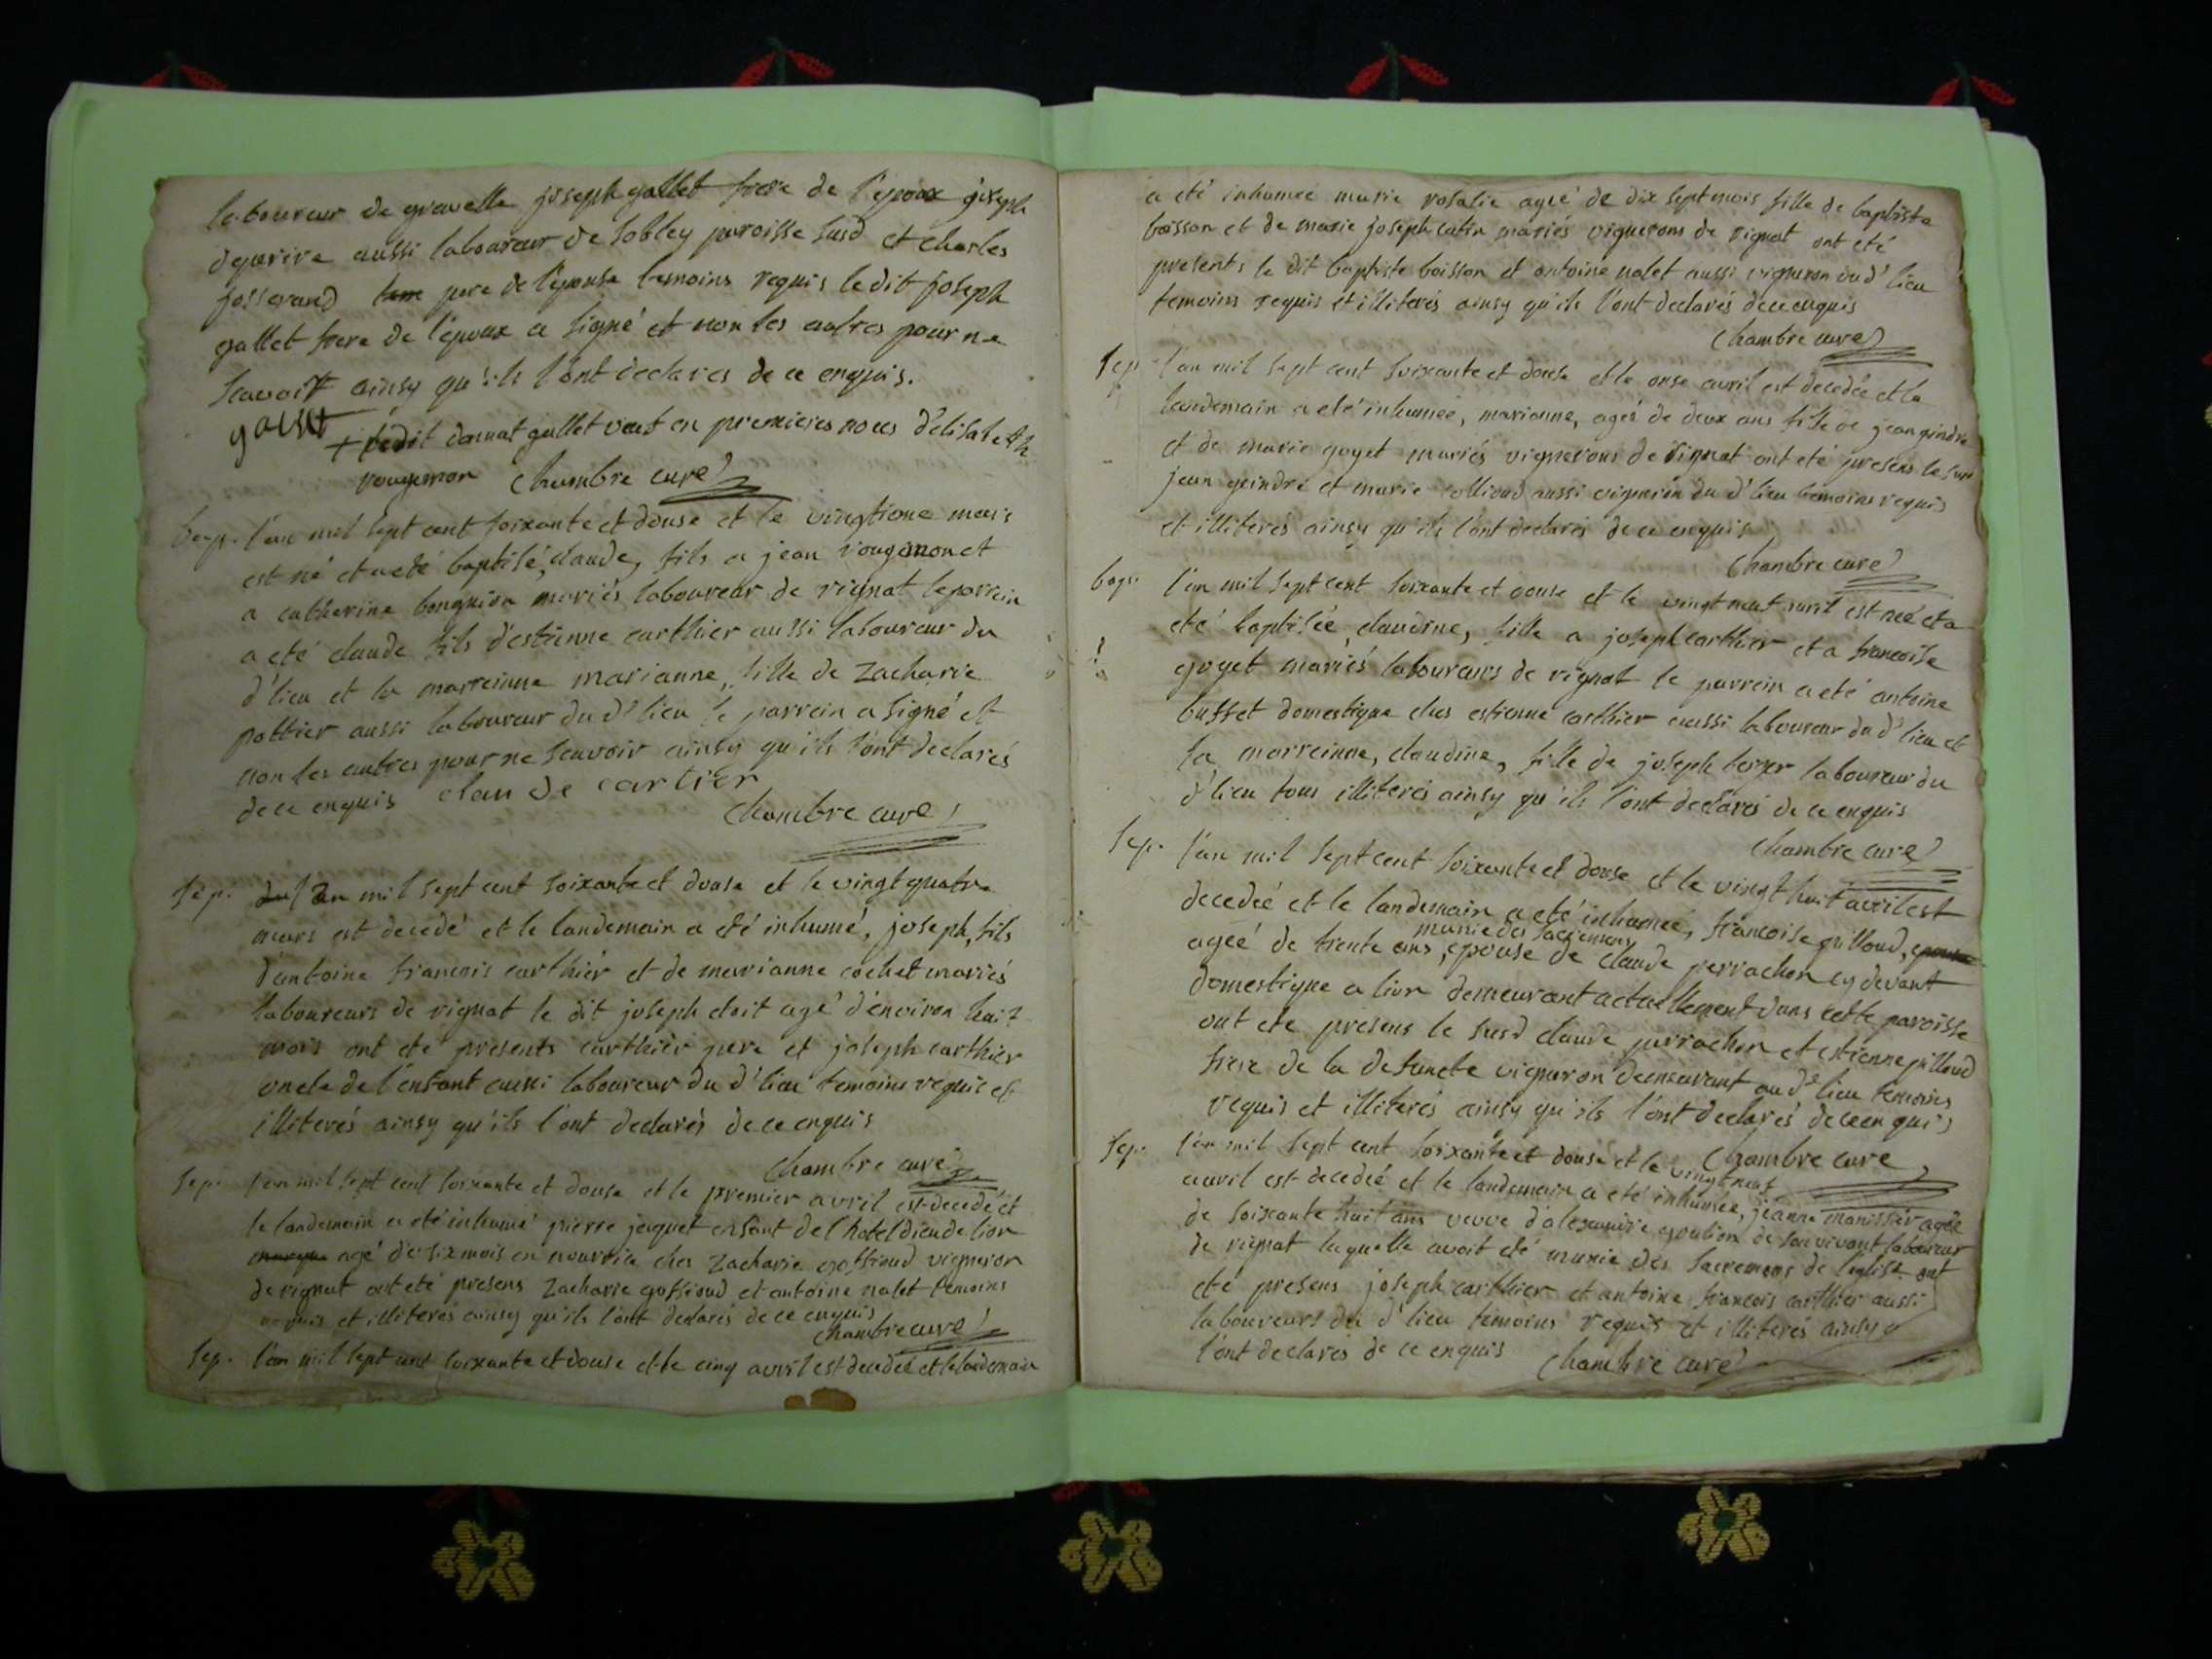 laboureur de gravelle joseph gallet frere de l'epoux joseph
deparire aussi laboureur de sobley paroisse susd et charles
josserand pere de l'epouse temoins requis le dit joseph
gallet frere de l'époux a signé et non les autres pour ne
scavoir ainsy qu'ils l'ont declares de ce enquis.
gallet
+ ledit donnat gallet veuf en premieres noces d'elisabeth
rougemon Chambre curé
bap. l'an mil sept cent soixante et douse et le vingtione mars
est né et a eté baptisé, claude, fils a jean rougemon et
a catherine bonguion mariés laboureur de rignat le parrein
a eté claude fils d'estienne carthier aussi laboureur du
d' lieu et la marreinne marianne, fille de Zacharie
pottier aussi laboureur du d' lieu le parrein a signé et
non les autres pour ne scavoir ainsy qu'ils l'ont declarés
de ce enquis clau de cartier
Chambre curé
sep. l'an mil sept cent soixante et douse et le vingt quatre
mars est decedé et le landemain a eté inhumé, joseph, fils
d'antoine francois carthier et de marianne cochet mariés
laboureurs de rignat le dit joseph etoit agé d'environ huit
mois ont eté presents carthier pere et joseph carthier
oncle de l'enfant aussi laboureur du d' lieu temoins requis et
illiterés ainsy qu'ils l'ont declarés de ce enquis
Chambre curé
Sep. l'an mil sept cent soixante et douse et le premier avril est decedé et
le landemain a eté inhumé pierre jaquet enfant de l'hotel dieu de lion
agé de six mois en nourrice ches Zacharie goffioud vigneron
de rignat ont eté presens Zacharie goffioud et antoine nalet temoins
requis et illiterés ainsy qu'ils l'ont declarés de ce enquis
Chambre curé
Sep. l'an mil sept cent soixante et douse et le cinq avril est decedée et le landemain
a eté inhumée marie rosalie ageé de dix sept mois fille de baptiste
boisson et de marie joseph catin mariés vignerons de rignat ont eté
présents le dit baptiste boisson et antoine nalet aussi vigneron du d' lieu
temoins requis et illiterés ainsy qu'ils l'ont declarés de ce enquis
Chambre curé
Sep. l'an mil sept cent soixante et douse et le onse avril est decedée et le
landemain a eté inhumeé, marianne, ageé de deux ans fille de jean gindre
et de marie goyet mariés vignerons de rignat ont eté presens le susd
jean geindre et marie collioud aussi vigneron du d' lieu temoins requis
et illiterés ainsy qu'ils l'ont declarés de ce enquis
Chambre curé
bap. l'an mil sept cent soixante et douse et le vingt neuf avril est neé et a
eté baptisée, claudine, fille a joseph carthier et a francoise
goyet mariés laboureurs de rignat le parrein a eté antoine
buffet domestique ches estienne carthier aussi laboureur du d' lieu et
la marreinne, claudine, fille de joseph laboureur du
d' lieu tous illiterés ainsy qu'ils l'ont declarés de ce enquis
Chambre curé
Sep. l'an mil sept cent soixante et douse et le vingt huit avril est
decedeé et le landemain a eté inhumeé, francoise pilloud, epouse
munie des sacremens
ageé de trente ans, epouse de claude perrachon cy devant
domestique a lion demeurant actuellement dans cette paroisse
ont eté presens le susd claude perrachon et estienne pilloud
frere de la defuncte vigneron demeurant au d' lieu temoins
requis et illiterés ainsy qu'ils l'ont declarés de ce enquis
Chambre curé
Sep. l'an mil sept cent soixante et douse et le vingt neuf
avril est decedeé et le landemain a eté inhumée, jeanne manissier agée
de soixante huit ans veuve d'alexandre goubion de son vivant laboureur
de rignat laquelle avoit eté munie des sacremens de l'eglise ont
eté presens joseph carthier et antoine francois carthier aussi
laboureurs du d' lieu temoins requis et illiterés ainsy
l'ont declarés de ce enquis Chambre curé